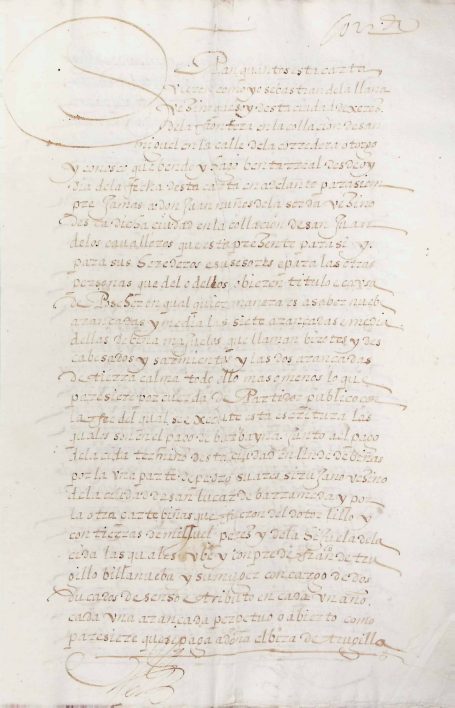 Sepan quantos esta carta
vieren como yo sebastian de la llana
vezino que soy desta ciudad de xerez
de la frontera en la collacion de san
miguel en la calle de la corredera otorgo
y conosco que bendo y hago benta rreal desde oy
dia de la fecha desta carta en adelante para siem
pre jamas a don Juan nuñes de la serda vezino
desta dicha ciudad en la collacion de san Juan
de los cavalleros que esta presente para si y
para sus herederos e susesores e para las otras
personas que del o dellos obieren titulo e causa
de en qual quier manera es a saber nuebe
arançadas y media las siete arançadas e media
dellas de biña majuelos que llaman y des
cabesados y sarmientos y las dos arançadas
de tierra calma todo ello mas o menos lo que
paresiere por cuerda de Partidor publico con
la fee del qual se execute esta escritura las
quales son en el pago de barbayna junto al pago
de la cida termino desta ciudad en linde de biñas
por la vna parte de pedro suares sirujano vezino
de la ciudad de san lucar de barrameda y por
la otra parte biñas que fueron del dotor lillo y
con tierras de miguel peres y de la
cida las quales ube y conpre de fran.co de tru
gillo billanueba y su muger con cargo de dos
ducados de senso e tributo en cada vn año
cada vna arançada perpetuo o abierto como
paresiere que se paga a doña elbira de trugillo